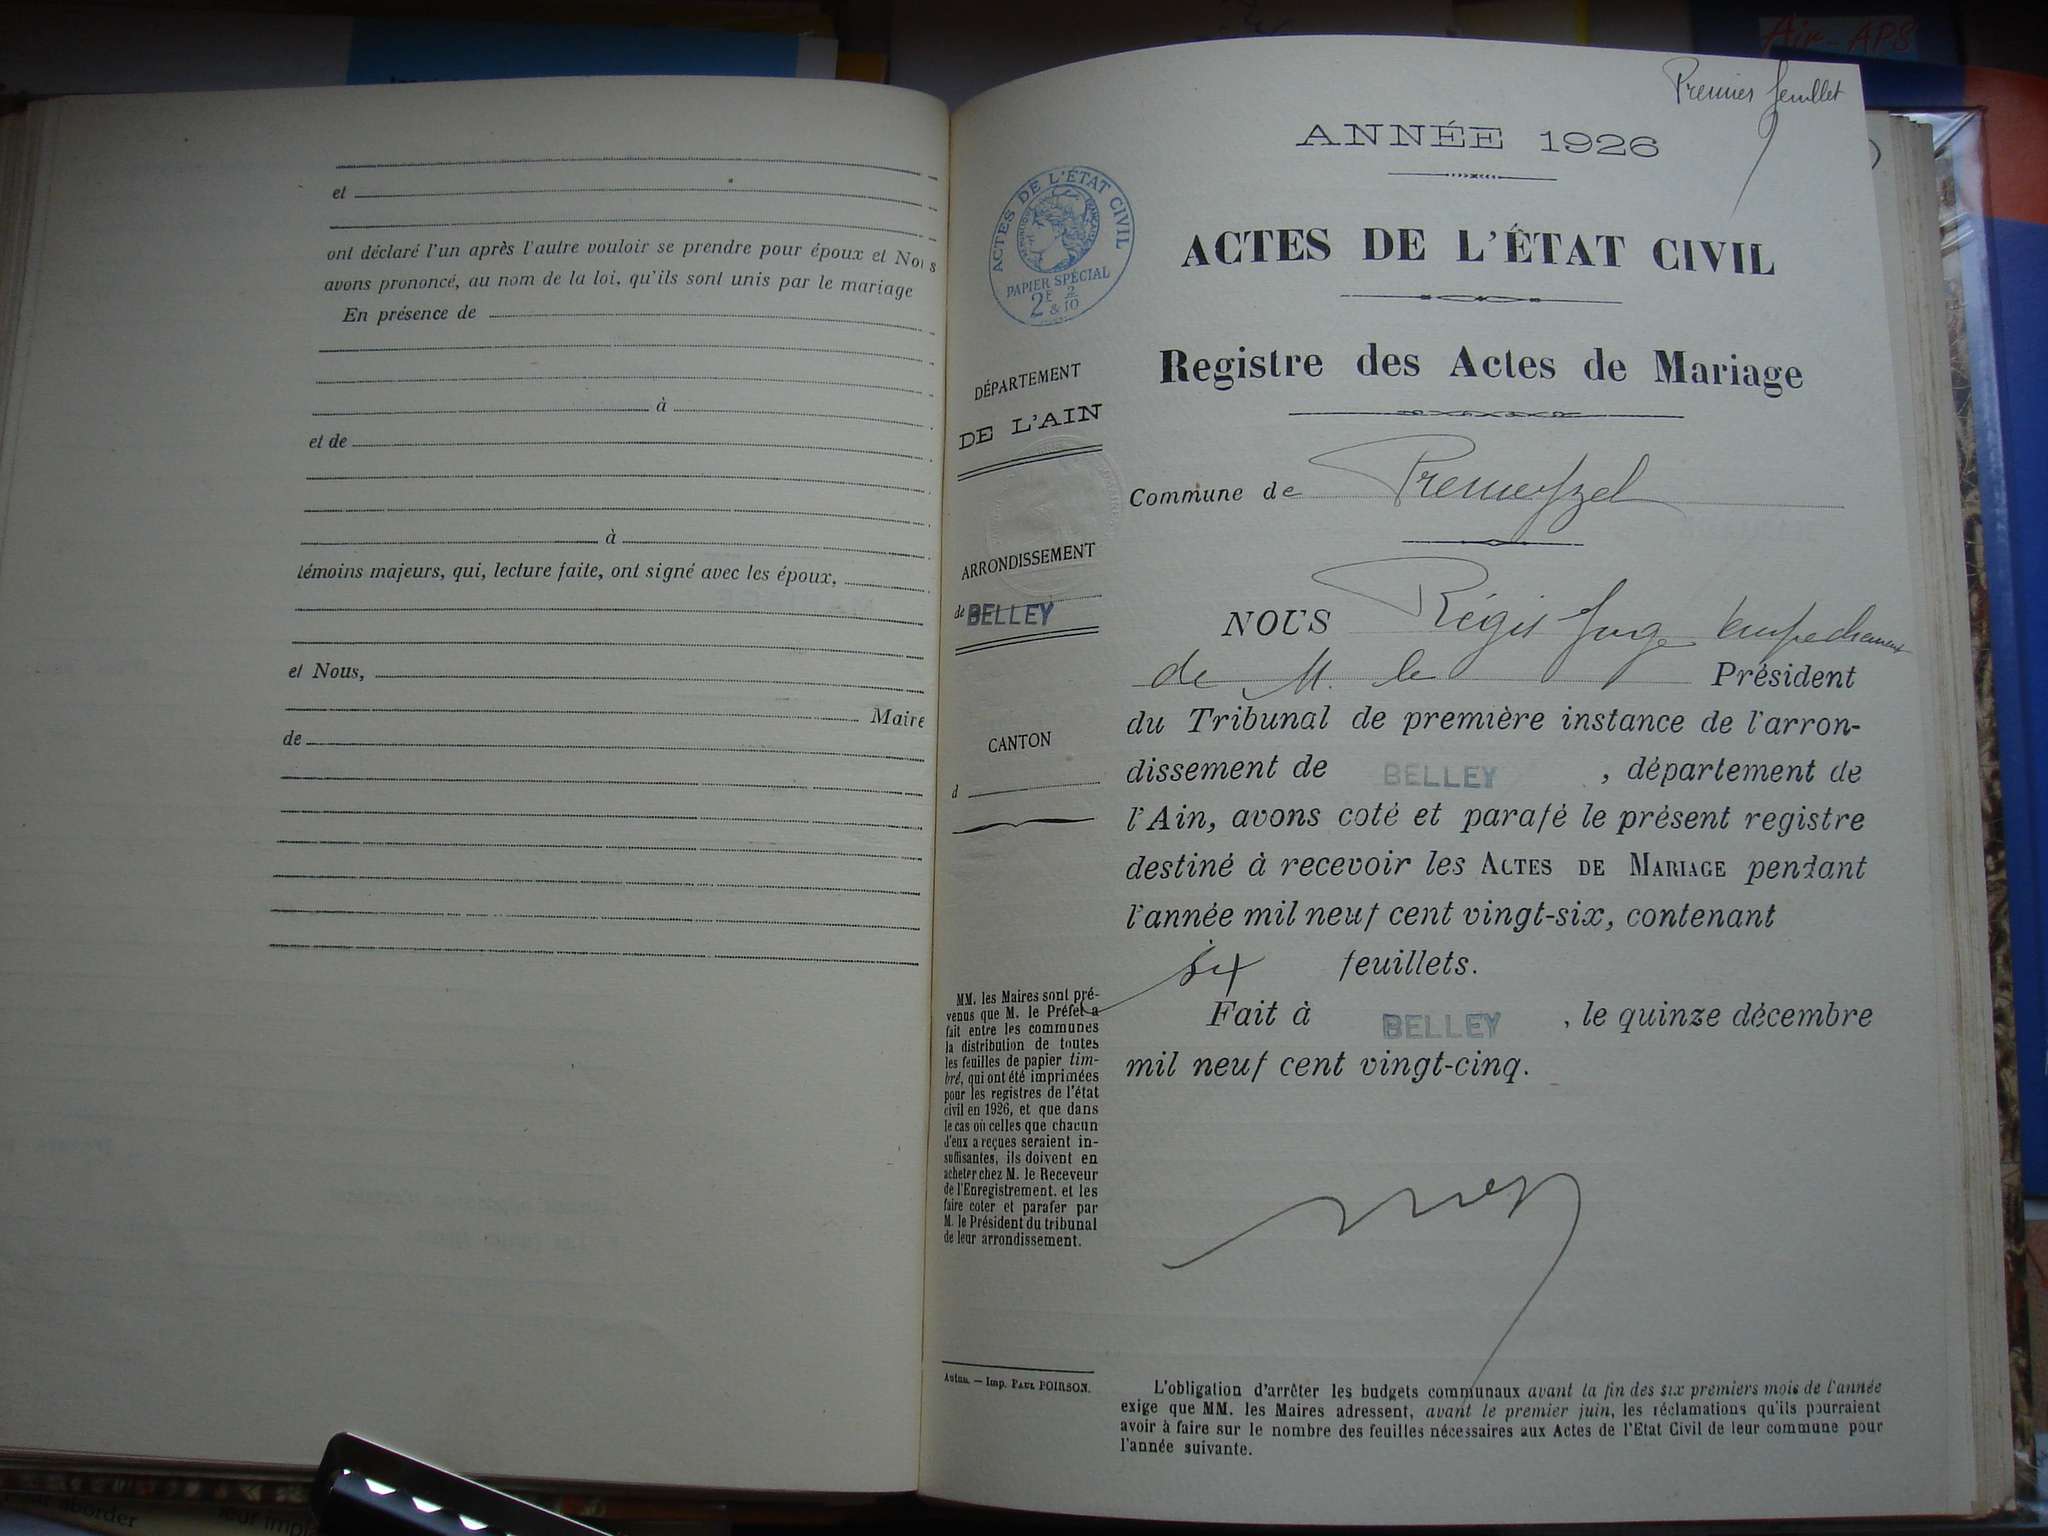 Air-APS
et
ont déclaré l'un après l'autre vouloir se prendre pour époux et Nous
avons prononcé, au nom de la loi, qu'ils sont unis par le mariage
En présence de
à
et de
à
témoins majeurs, qui, lecture faite, ont signé avec les époux,
et Nous,
Maire
de
Premier feuillet
ANNÉE 1926
ACTES DE L'ÉTAT CIVIL
RÉPUBLIQUE FRANÇAISE
PAPIER SPÉCIAL
2F & 2/10
ACTES DE L'ÉTAT CIVIL
Registre des Actes de Mariage
DÉPARTEMENT
DE L'AIN
ARRONDISSEMENT
de BELLEY
CANTON
d
Commune de Premeyzel
NOUS Régis Juge empechement
de M. le Président
du Tribunal de première instance de l'arron-
dissement de BELLEY, département de
l'Ain, avons coté et parafé le présent registre
destiné à recevoir les ACTES DE MARIAGE pendant
l'année mil neuf cent vingt-six, contenant
six feuillets.
Fait à BELLEY, le quinze décembre
mil neuf cent vingt-cinq.
MM. les Maires sont pré-
venus que M. le Préfet a
fait entre les communes
la distribution de toutes
les feuilles de papier tim-
bré, qui ont été imprimées
pour les registres de l'état
civil en 1926, et que dans
le cas où celles que chacun
d'eux a reçues seraient in-
suffisantes, ils doivent en
acheter chez M. le Receveur
de l'Enregistrement, et les
faire coter et parafer par
M. le Président du tribunal
de leur arrondissement.
Autun. — Imp. PAUL POIRSON.
L'obligation d'arrêter les budgets communaux avant la fin des six premiers mois de l'année
exige que MM. les Maires adressent, avant le premier juin, les réclamations qu'ils pourraient
avoir à faire sur le nombre des feuilles nécessaires aux Actes de l'Etat Civil de leur commune pour
l'année suivante.
aborder
leur